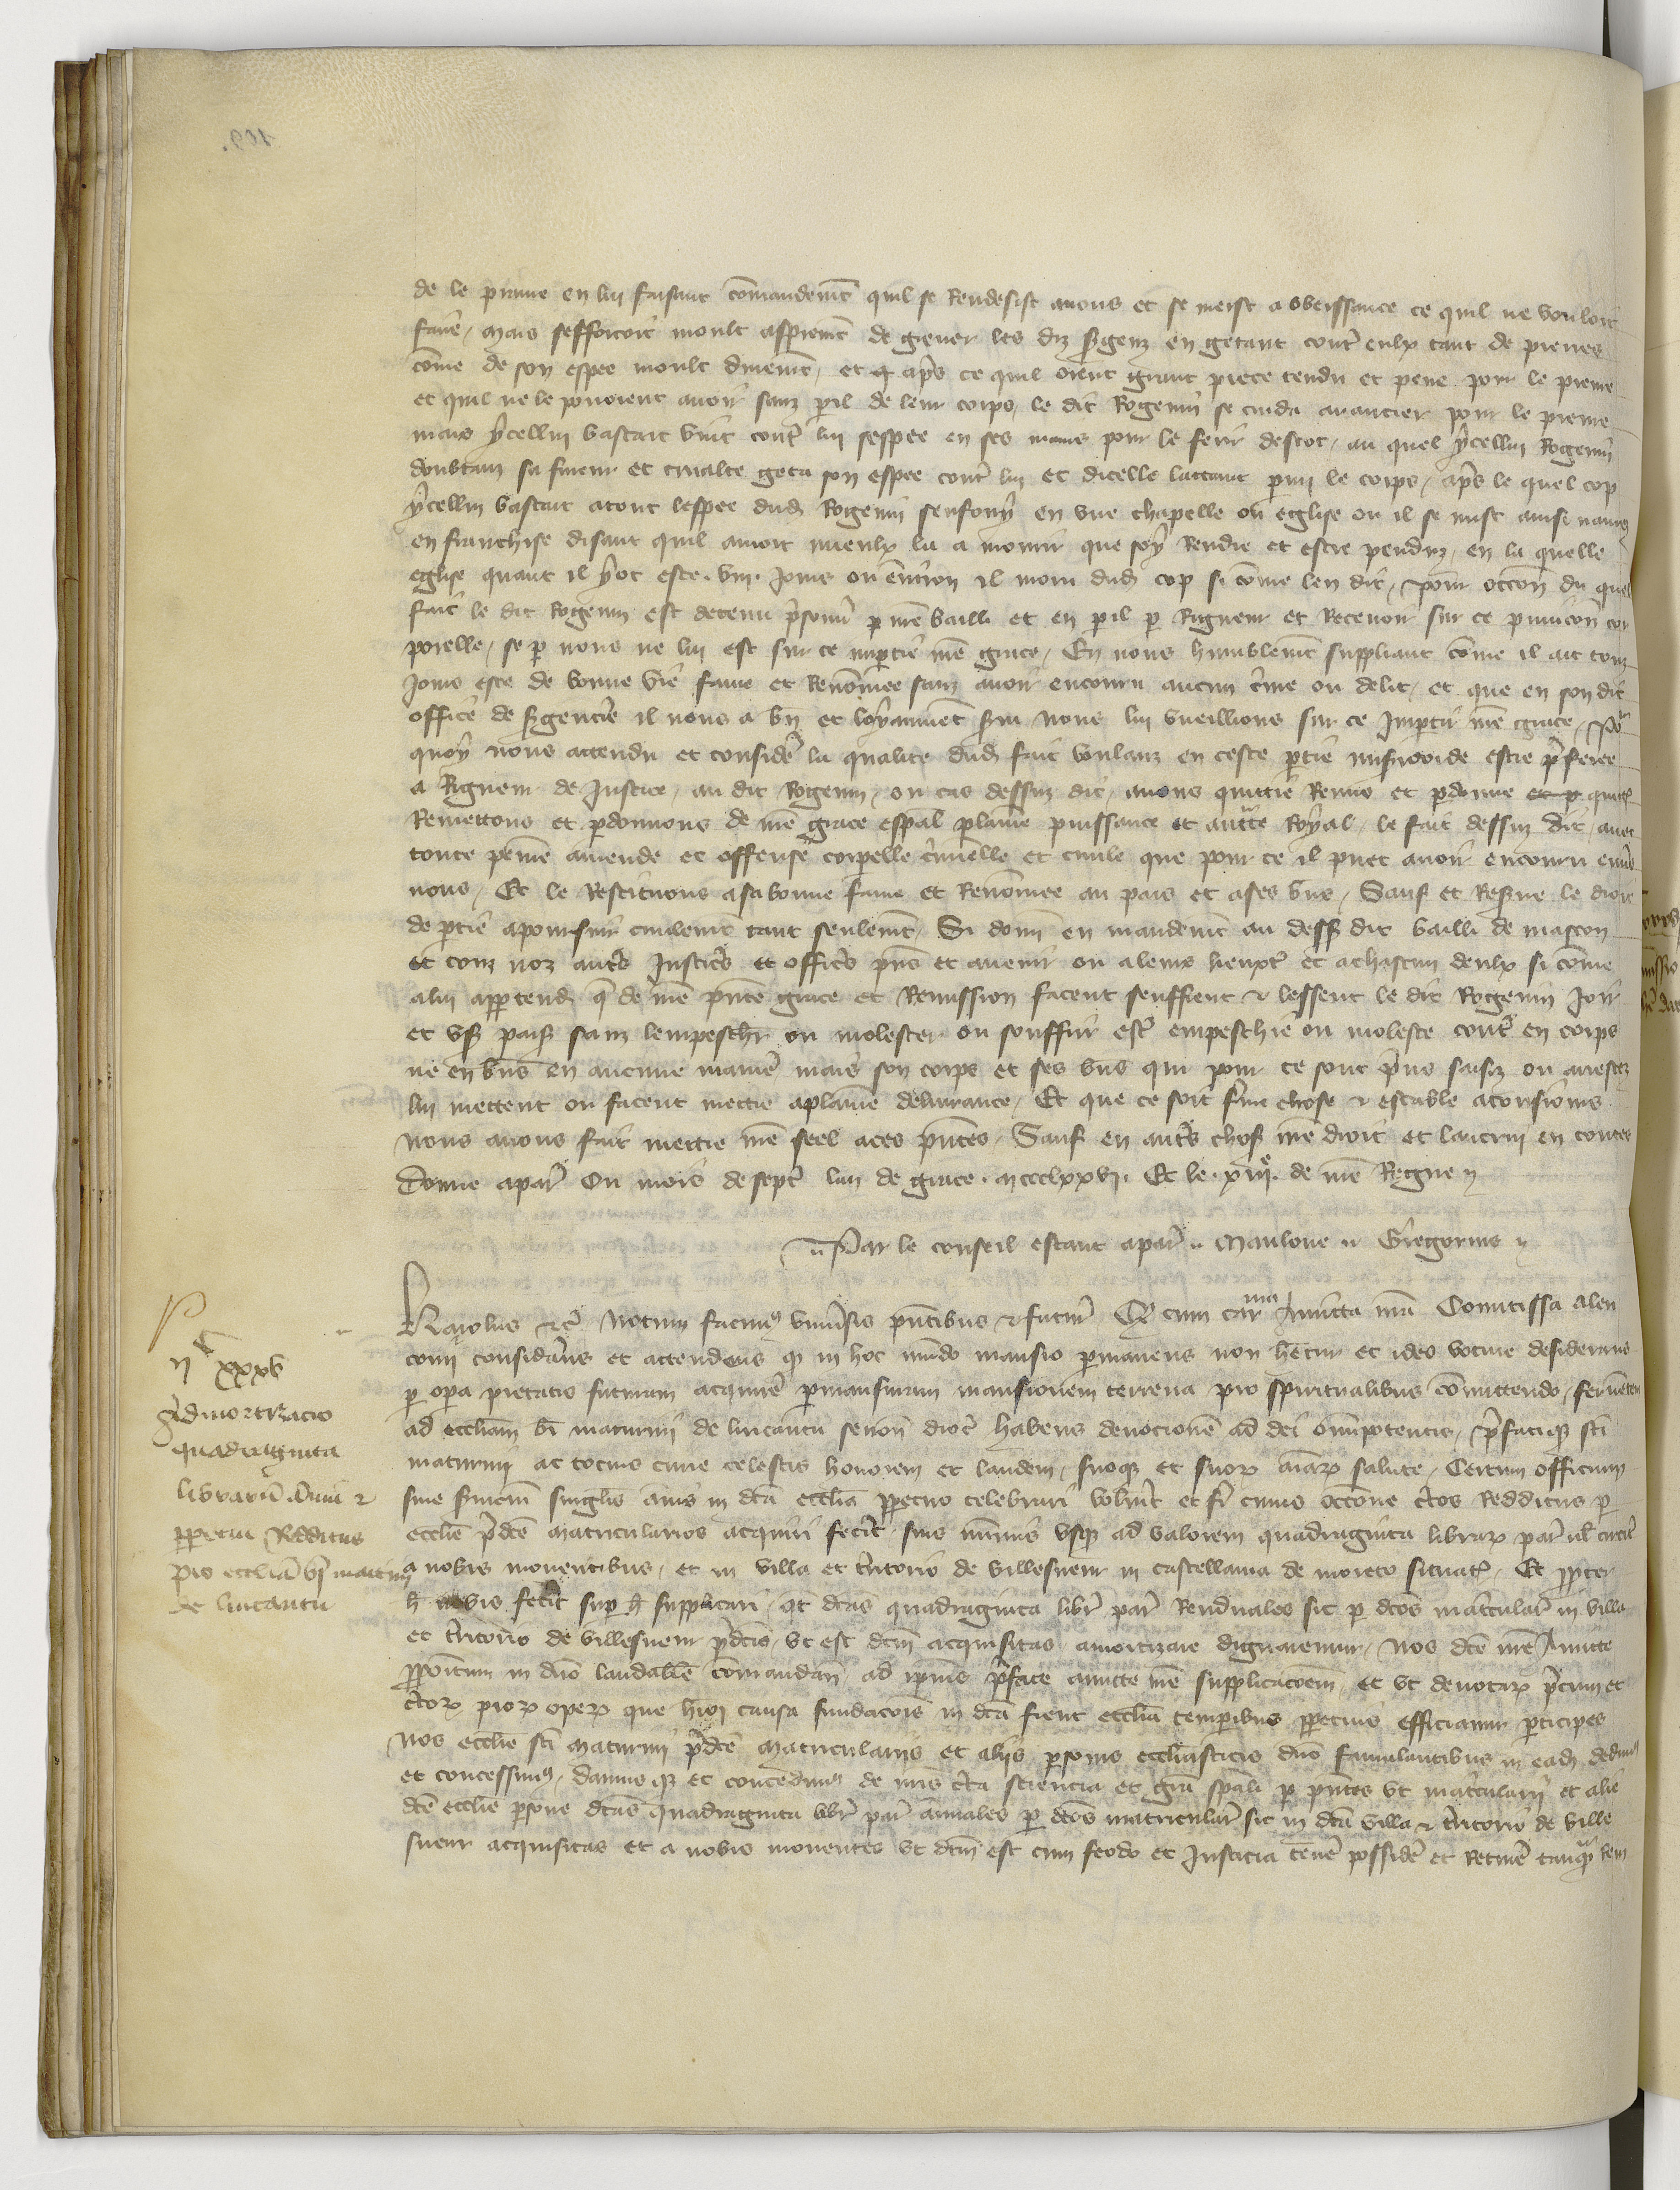 109.
de le prenre en lui faisant co͞mandem̃t quil se Rendesist a nous et se meist a obeissance ce quil ne vouloit
faire / Mais sefforcoit moult asprem̃t de grever les diz s̃genz en getant contr̃ eulx tant de pierres
co͞me de son espee moult durem̃t / et ap̃s ce quil orent grant piece tendu et pene pour le prenre
et quil ne le povoient avoir sanz peril de leur corps / le dit Rogenin se cuida avancier pour le prenre
mais ycellui bastart vint contr̃ lui sespee en ses mains pour le ferir destoc / au quel ycellui Rogenin
doubtanz sa fureur et crualte geta son espee contr̃ lui et dicelle lattaint parmi le corps / ap̃s le quel cop
ycellui bastart atout lespee dud Rogenin senfouy en une chapelle ou eglise ou il se mist ainsi navrez
en franchise disant quil amoit mieulx la a mourir que soy Rendre et estre penduz / en la quelle
eglise quant il y ot este .viii. jours ou environ il morut dud cop si co͞me len dit / pour occon̄ du quel
fait le dit Rogenin est detenu p̃sonnier p nr̃e bailli et en peril p Rigueur et Recevoir sur ce punicon̄ cor
porelle / se p nous ne lui est sur ce impartie nr̃e grace / En nous humblem̃t suppliant co͞me il ait touz
jours este de bonne vie fame et Reno͞mee sanz avoir encouru aucun c̃me ou delit / et que en son dit
office de s̃genterie il nous a bn̄ et loyaument servi nous lui vueillions sur ce impartir nr̃e grace / Po
quoy nous attendu et consider̃ la qualite dud fait voulanz en ceste partie misericorde estre p̃feree
a Rigueur de justice / au dit Rogenin / ou cas dessuz dit / avons quittie Remis et pdonne quitt̃
Remettons et pdonnons de nr̃e grace esp̃al plaine puissance et auctte Royal / le fait dessuz dit / avec
toute peine amende et offense corpelle c̃minelle et civile que pour ce il puet avoir encouru env̄s
nous / Et le Restituons a sa bonne fame et Reno͞mee au pais et a ses bn̄s / Sauf et Res̃ve le droit
de partie a poursuir civilem̃t tant seulem̃t / Si donn̄ en mandem̃t au dess dit bailli de mascon
et touz noz autr̃s justicr̃s et officr̃s pn̄s et avenir ou a leurs lieuxt̃ et a chascun deulx si co͞me
a lui apptend q̄ de nr̃e pn̄te grace et Remission facent seuffrent & lessent le dit Rogenin joir
et us̃ pais sanz lempeschr̃ ou molester ou souffrir estr̃ empeschie ou moleste contr̃ en corps
ne en bn̄s en aucune manier̃ mais son corps et ses bn̄s qui pour ce sont p̃ns saisiz ou arrestez
lui mettent ou facent mettre a plaine delivrance / Et que ce soit ferme chose & estable a tousjours
nous avons fait mettre nr̃e seel a ces pn̄tes / Sauf en autr̃s chos̃ nr̃e droit et lautrui en toutes
Donne a par̃ Ou mois de sept̃ lan de grace . Mccclxxvi . Et le .xiii.e de nr̃e Regne
Par le conseil estant a par̃ Mauloue Gregorius
Karolus &c̃ Notum facimus univ̄sis pn̄tibus & futur̃ Q cum carma Amitta nr̃a Comitissa Alen
conii considãns et attendens q in hoc mundo mansio pmanens non hetur et ideo votive desiderans
p opa pietatis futuram acquirer̃ pmansuram mansionem terrena pro spiritualibus co͞mittendo / fervent̄
ad eccliam bi͞ maturini de liricantu senon̄ dioc̃ habens devocionē ad dei omnipotentis / p̃fatiq̄ s͞ti
maturini ac tocius curie celestis honorem et laudem / suoq̄ et suor aīar salute / Certum officium
sive servicium singulis a͞nis in dc͞a ecclīa ppetuo celebrari voluit̃ et fi͞ cuius occōne c̃tos Redditus p
ecclīe p̃dc̃e Matricularios acquiri fecit̃ suis mediis usq̄ ad valorem quadraginta librar par̃ ul̃ circit̃
a nobis moventibus / et in villa et t̃ritorio de villesuem in castellania de moreto situat̃ / Et ppter
h nobis fecit sup h supplicari / qt dc͞as quadraginta libr̃ par̃ Renduales sic p dc͞os mat̃cular̃ in villa
et t̃ritorio de villesuem p̃dc̃is / ut est dc͞m acquisitas / amortizare dignaremur / Nos dc̃e nr̃e Amitte
ppositum in d͞no laudabile co͞mandan̄ / ad ipīus p̃fate amitte nr̃e supplicacoem̄ / et ut devotar p̃cum et
c̃tor pior oper que hui͞ causa fundacoīs in dc͞a fient ecclīa temporibus ppetuis efficiamur participes
Nos ecclīe s͞ti Maturini p̃dc̃e Matriculariis et aliis psonis eccl̃iasticis d͞no famulantibus in ead dedimus
et concessimus / damus q̄ et concedimus de nr̃is c̃ta sciencia et gr̃a spāli p pn̄tes ut mat̃cularii et alie
dc̃e ecclīe psone dc͞as quadraginta libr̃ par̃ a͞nnales p dc͞os matricular̃ sic in dc͞a villa & t̃ritorio de ville
suem acquisitas et a nobis moventes ut dc͞m est cum feodo et justicia tener̃ possider̃ et retiner̃ tanq̄ Rem
n c xxxv
Admortizacio
quadraginta
librarū annui &
ppetui Redditus
pro ecclīa bi͞ maturini
de liricantu